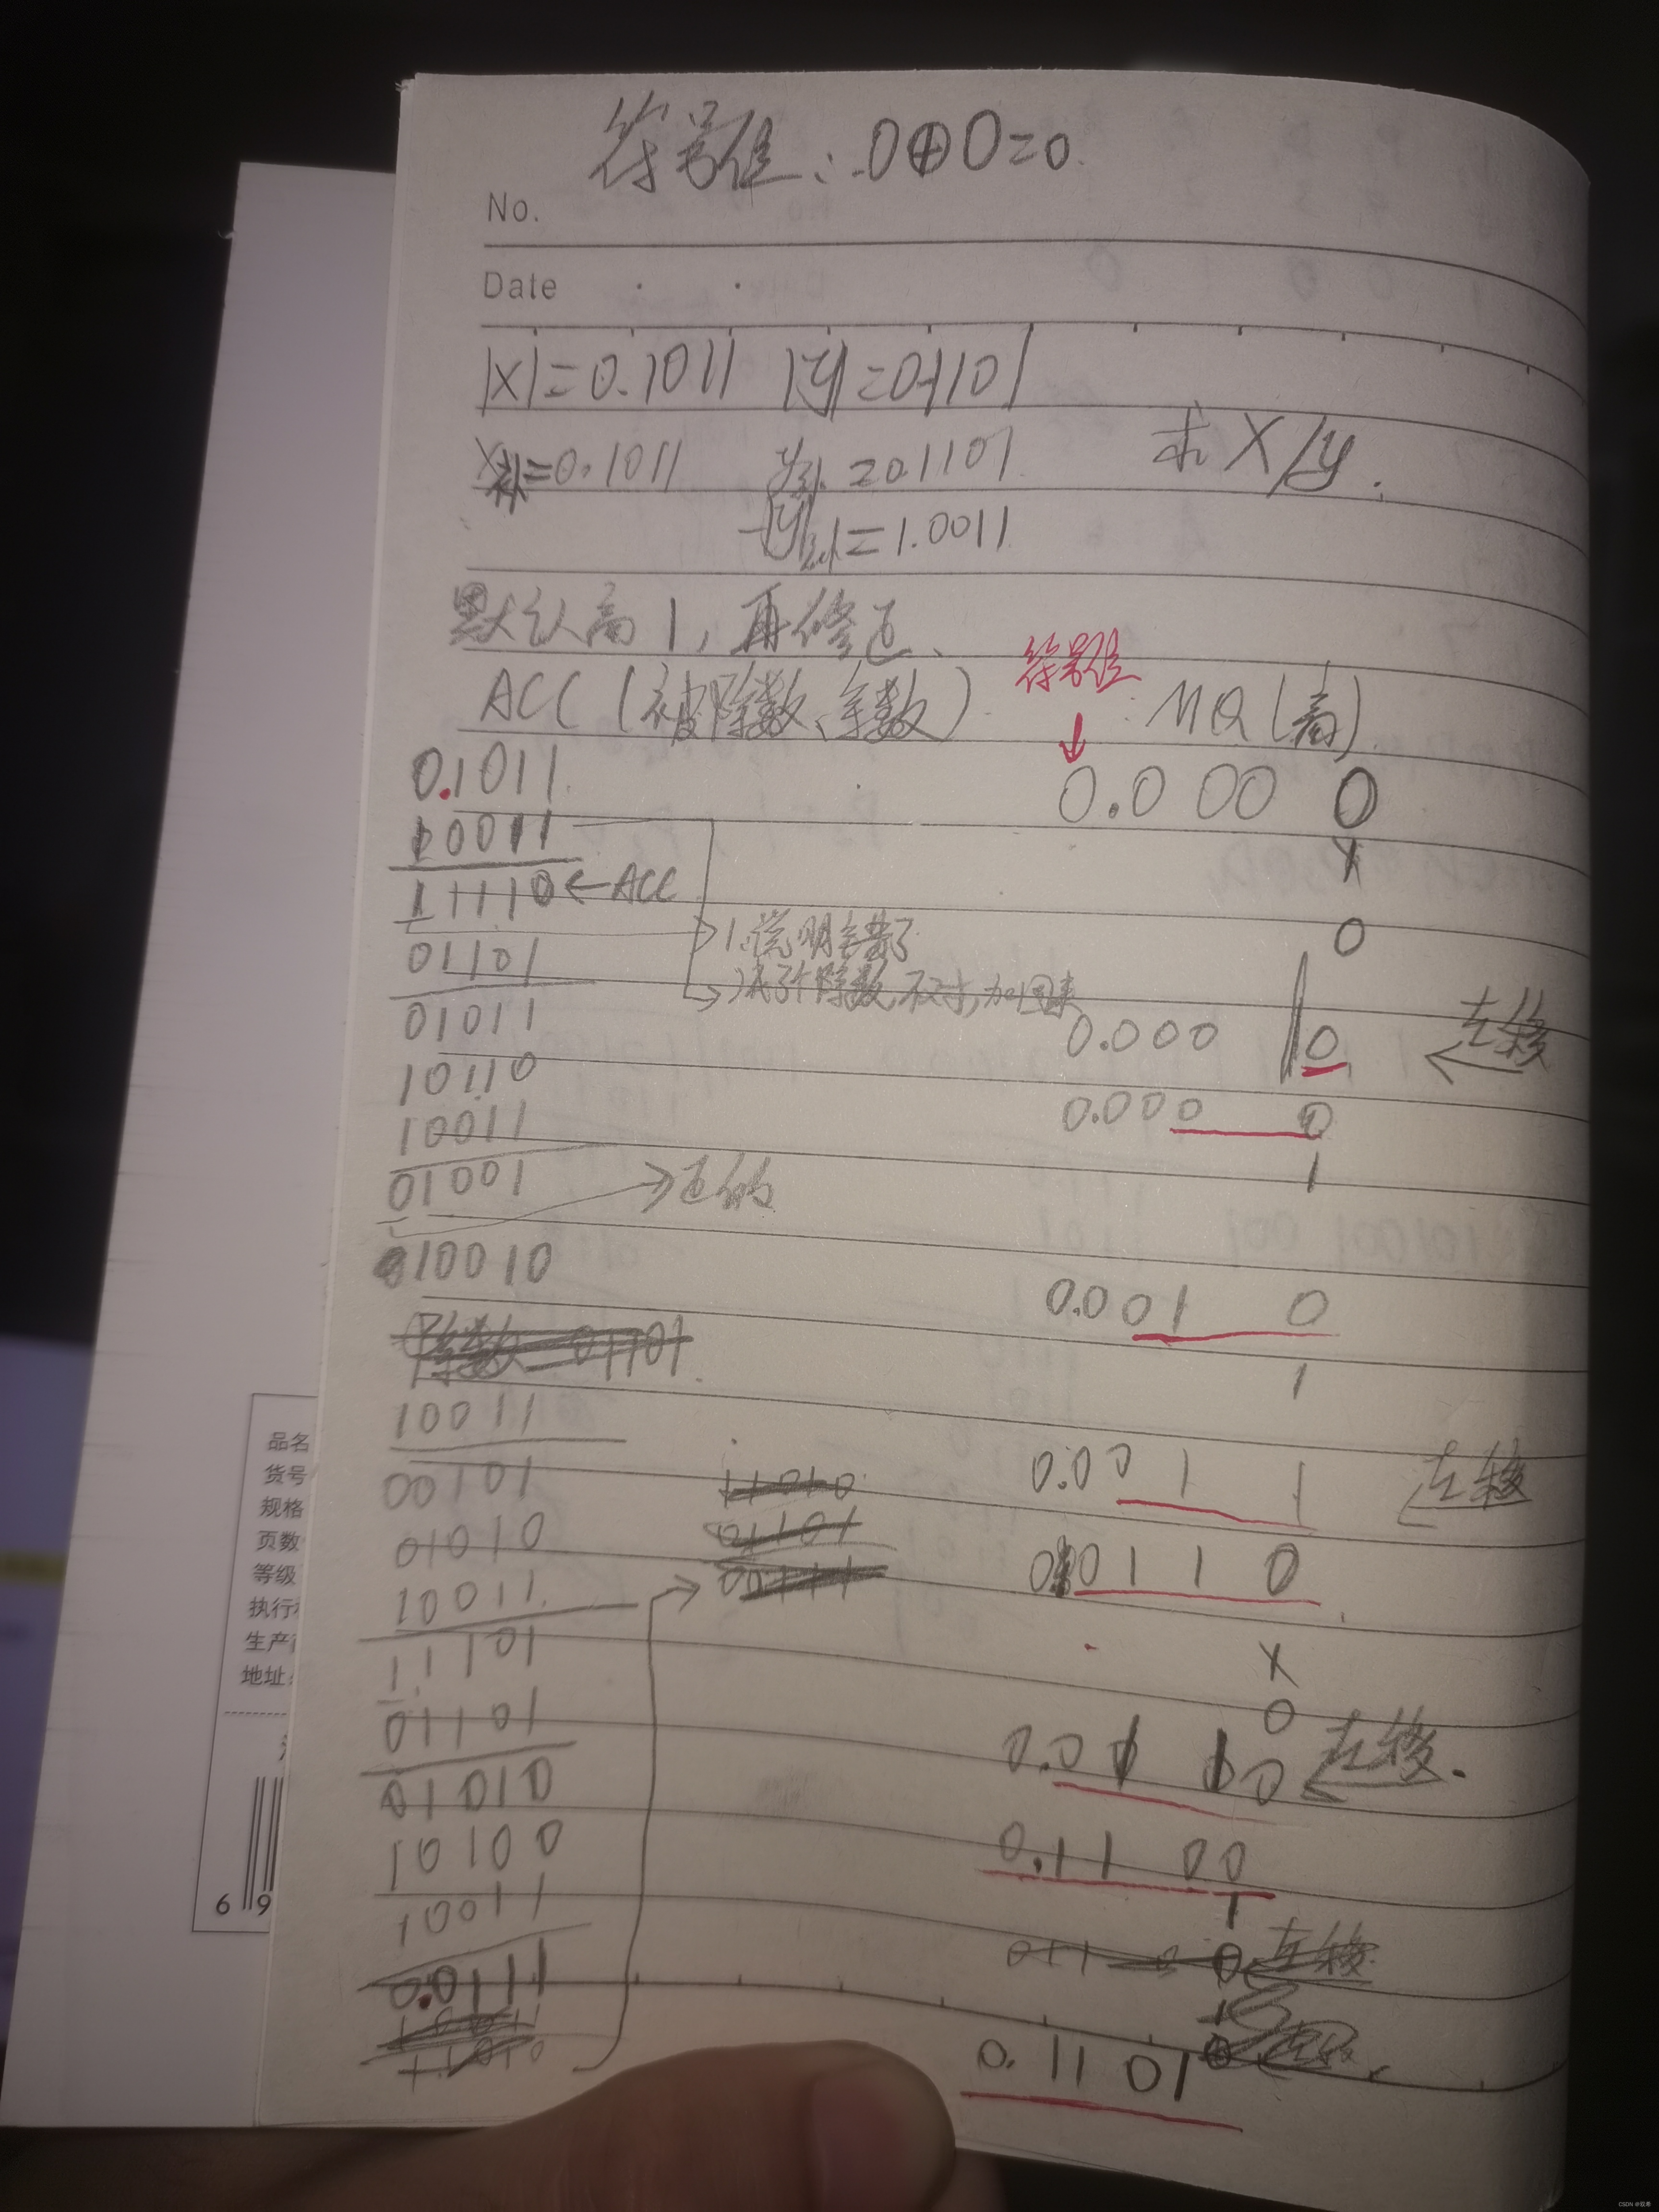 符号位:0⊕0=0
No.
Date
|x|=0.1011 |y|=0.1101
x补=0.1011 y补=0.1101 求X/y.
-|y|补=1.0011
默认商1,再修正、
符号位
ACC(被除数、余数) MQ(商)
0.1011 0.000 0
10011 x
11110←ACC 0
1.说明余数了
01101
减了个除数,不对,加回来
01011 0.000 0 左移
10110
0.000 0
10011
01001 →正的 1
10010 0.001 0
1
10011
00101 0.00 1 1 左移
01010 0.01 1 0
10011
11101 x
01101 0
01010 0.01 1 0 左移.
10100 0.11 00
10011 1
0.0111
0.1101
品名
货号
规格
页数
等级
执行
生产
地址
6 9
CSDN @双希